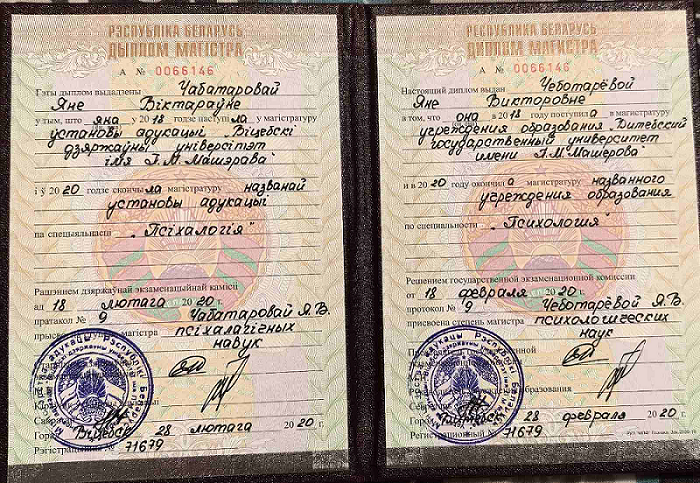 РЭСПУБЛІКА БЕЛАРУСЬ
ДЫПЛОМ МАГІСТРА
А № 0066146
Гэты дыплом выдадзены Чабатаровай
Яне Віктараўне
у тым, што яна у 2018 годзе наступіла ў магістратуру
установы адукацыі „Віцебскі
дзяржаўны ўніверсітэт
імя П.М.Машэрава"
і ў 2020 годзе скончыла магістратуру названай
установы адукацыі
па спецыяльнасці „Псіхалогія"
Рашэннем дзяржаўнай экзаменацыйнай камісіі
ад 18 лютага 2020 г.
пратакол № 9 Чабатаровай Я.В.
магістра псіхалагічных
навук
Віцебск 28 лютага 2020 г.
Рэгістрацыйны № 71679
РЕСПУБЛИКА БЕЛАРУСЬ
ДИПЛОМ МАГИСТРА
А № 0066146
Настоящий диплом выдан Чеботарёвой
Яне Викторовне
в том, что она в 2018 году поступила в магистратуру
учреждения образования „Витебский
государственный университет
имени П.М.Машерова
и в 2020 году окончила магистратуру названного
учреждения образования
по специальности „Психология"
Решением государственной экзаменационной комиссии
от 18 февраля 2020 г.
протокол № 9 Чеботарёвой Я.В.
присвоена степень магистра психологических
наук
28 февраля 2020 г.
Регистрационный № 71679